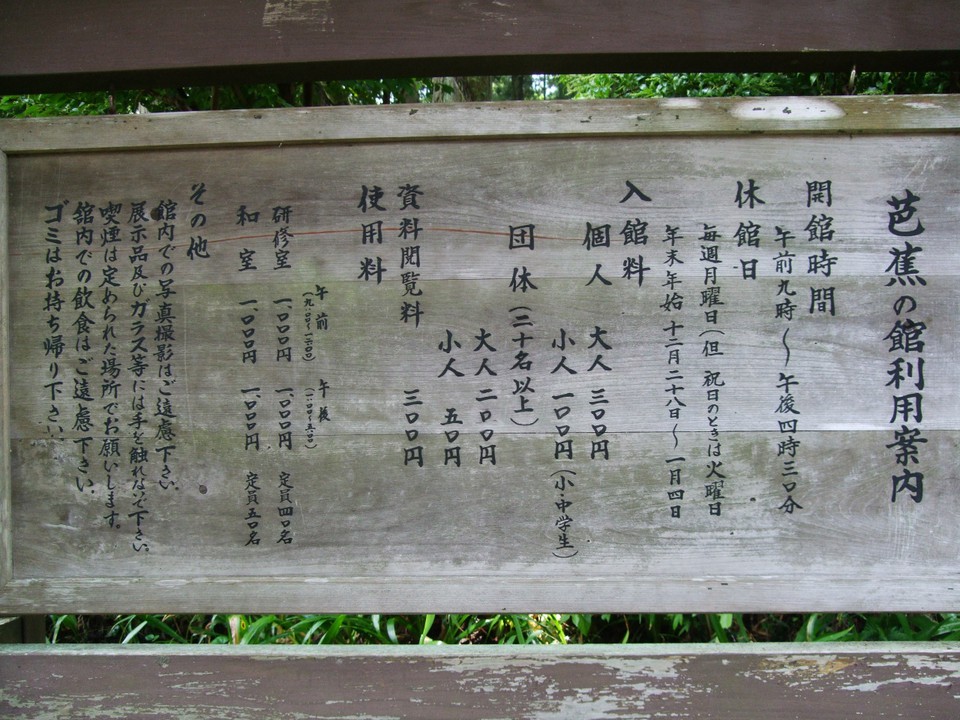 芭蕉の館利用案内
開館時間
午前九時～午後四時三〇分
休館日
毎週月曜日(但 祝日のときは火曜日
年末年始 十二月二十八日～一月四日
入館料
個人 大人 三〇〇円
小人 一〇〇円(小・中学生)
団体(二十名以上)
大人 二〇〇円
小人 五〇円
資料閲覧料 三〇〇円
使用料
午前 午後
(九:〇〇～一二:〇〇) (一:〇〇～五:〇〇)
研修室 一、〇〇〇円 一、〇〇〇円 定員四〇名
和室 一、〇〇〇円 一、〇〇〇円 定員五〇名
その他
館内での写真撮影はご遠慮下さい。
展示品及びガラス等には手を触れないで下さい。
喫煙は定められた場所でお願いします。
館内での飲食はご遠慮下さい。
ゴミはお持ち帰り下さい。